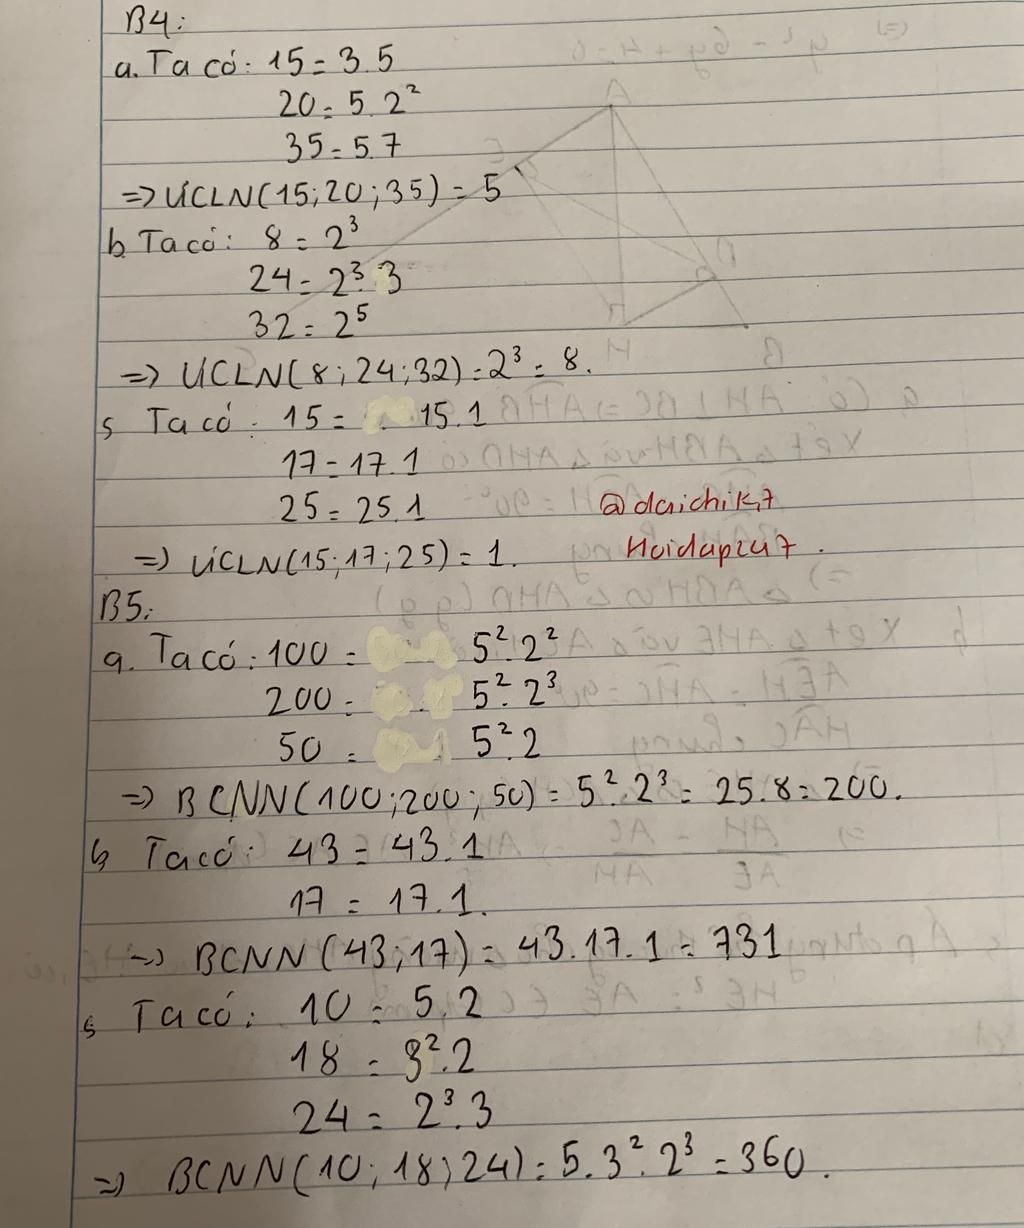 B4:
a. Ta có: 15 = 3.5
20 = 5.2²
35 = 5.7
=> ƯCLN(15;20;35) = 5
b, Ta có: 8 = 2³
24 = 2³.3
32 = 2⁵
=> ƯCLN(8;24;32) = 2³ = 8.
c, Ta có: 15 = 15.1
17 = 17.1
25 = 25.1
@daichik7
=> ƯCLN(15;17;25) = 1.
Hoidap247.
B5:
a. Ta có: 100 = 5².2²
200 = 5².2³
50 = 5².2
=> BCNN(100;200;50) = 5².2³ = 25.8 = 200.
b, Ta có: 43 = 43.1
17 = 17.1.
=> BCNN(43;17) = 43.17.1 = 731
c, Ta có: 10 = 5.2
18 = 3².2
24 = 2³.3
=> BCNN(10;18;24) = 5.3².2³ = 360.